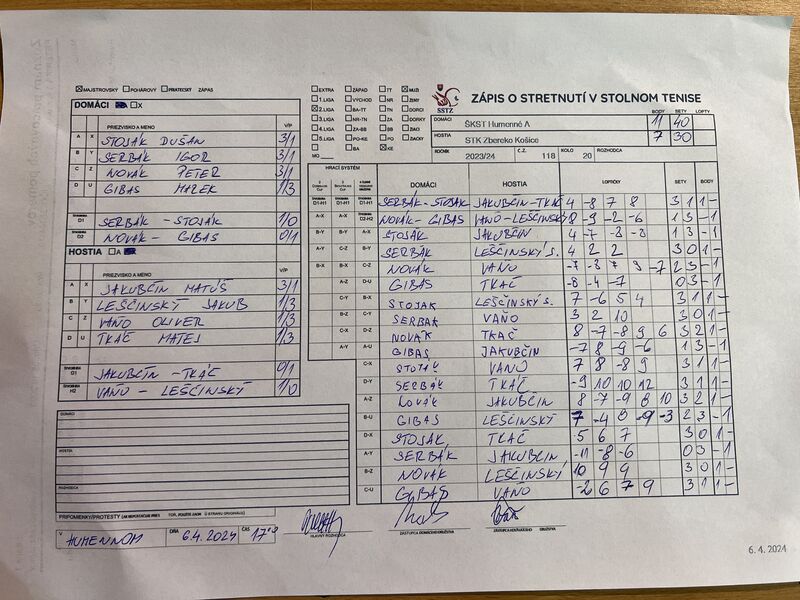 MAJSTROVSKÝ POHÁROVÝ PRIATEĽSKÝ ZÁPAS
DOMÁCI A X
PRIEZVISKO A MENO V/P
A X STOJÁK DUŠAN 3/1
B Y SERBÁK IGOR 3/1
C Z NOVÁK PETER 3/1
D U GIBAS MAREK 1/3
D1 SERBÁK - STOJÁK 1/0
D2 NOVÁK - GIBAS 0/1
HOSTIA A
PRIEZVISKO A MENO V/P
A X JAKUBČIN MATÚŠ 3/1
B Y LEŠČINSKÝ JAKUB 1/3
C Z VAŇO OLIVER 1/3
D U TKÁČ MATEJ 1/3
JAKUBČIN - TKÁČ 0/1
H2 VAŇO - LEŠČINSKÝ 1/0
DOMÁCI
HOSTIA
ROZHODCA
PRIPOMIENKY/PROTESTY
V HUMENNOM DŇA 6.4.2024 ČAS 17
EXTRA ZÁPAD TT MUŽI
1. LIGA VÝCHOD NR ŽENY
2. LIGA BA-TT TN DORCI
3. LIGA NR-TN ZA DORKY
4. LIGA ZA-BB BB ŽIACI
5. LIGA PO-KE PO ŽIAČKY
BA KE
MO
SSTZ
ZÁPIS O STRETNUTÍ V STOLNOM TENISE
BODY SETY LOPTY
DOMÁCI ŠKST Humenné A 11 40
HOSTIA STK Zbereko Košice 7 30
ROČNÍK 2023/24 Č.Z. 118 KOLO 20 ROZHODCA
HRACÍ SYSTÉM
DOMÁCI HOSTIA LOPTIČKY SETY BODY
D1-H1 D1-H1 D1-H1 SERBÁK - STOJÁK JAKUBČIN-TKÁČ 4 -8 7 8 3 1 1 -
A-X A-X D2-H2 NOVÁK - GIBAS VAŇO-LEŠČINSKÝ 8 -9 -2 -6 1 3 - 1
B-Y B-Y A-X STOJÁK JAKUBČIN 4 -7 -3 -3 1 3 - 1
A-Y C-Z B-Y SERBÁK LEŠČINSKÝ S. 4 2 2 3 0 1 -
B-X B-X C-Z NOVÁK VAŇO -7 -8 7 9 -7 2 3 - 1
A-Z D-U GIBAS TKÁČ -8 -4 -7 0 3 - 1
C-Y B-X STOJAK LEŠČINSKÝ S. 7 -6 5 4 3 1 1 -
B-Z C-Y SERBAK VAŇO 3 2 10 3 0 1 -
C-X D-Z NOVÁK TKÁČ 8 -7 -8 9 6 3 2 1 -
A-Y A-U GIBAS JAKUBČIN -7 8 -9 -6 1 3 - 1
C-X STOJÁK VAŇO 7 8 -8 9 3 1 1 -
D-Y SERBÁK TKÁČ -9 10 10 12 3 1 1 -
A-Z NOVÁK JAKUBČIN 8 -7 -9 8 10 3 2 1 -
B-U GIBAS LEŠČINSKÝ 7 -4 8 -9 -3 2 3 - 1
D-X STOJÁK TKÁČ 5 6 7 3 0 1 -
A-Y SERBÁK JAKUBČIN -11 -8 -6 0 3 - 1
B-Z NOVÁK LEŠČINSKÝ 10 9 9 3 0 1 -
C-U GIBAS VAŇO -2 6 7 9 3 1 1 -
HLAVNÝ ROZHODCA ZÁSTUPCA DOMÁCEHO DRUŽSTVA ZÁSTUPCA HOSŤUJÚCEHO DRUŽSTVA
6. 4. 2024